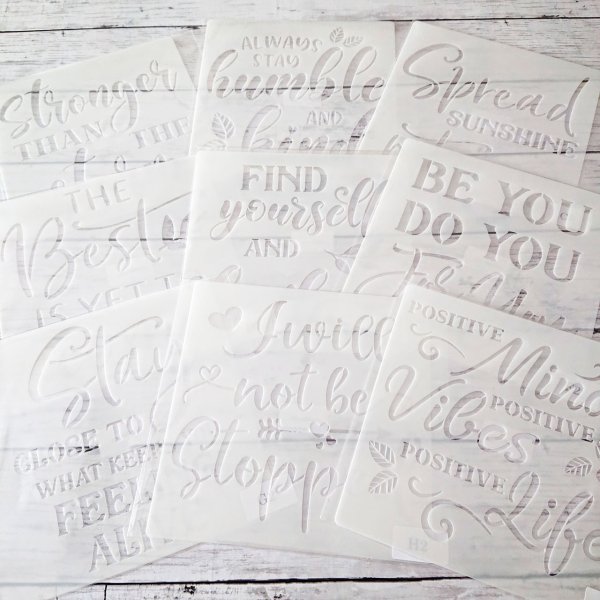 stronger
THAN THE
ALWAYS
STAY
humble
AND
kind
Spread
SUNSHINE
THE
Best
IS YET T
FIND
yourself
AND
BE YOU
DO YOU
For You
Stay
CLOSE TO
WHAT KEEP
FEEL
ALI
I will
not be
Stopp
POSITIVE
Mind
Vibes
POSITIVE
POSITIVE
Life
H2